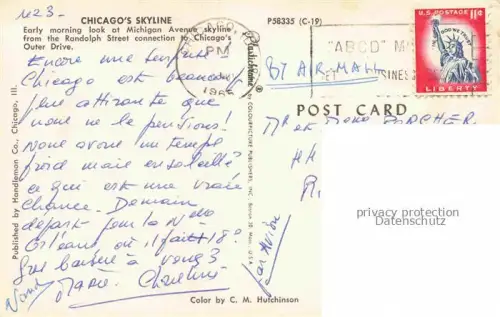 M23-
CHICAGO'S SKYLINE
Early morning look at Michigan Avenue skyline
from the Randolph Street connection to Chicago's
Outer Drive.
P58335 (C-19)
Encore une surprise
Chicago est beaucoup
plus attirante que
nous ne le pensions!
Nous avons un temps
froid mais ensoleillé
ce qui est une vraie
chance. Demain
départ pour la Nlle
Orléans où il fait 18°
Gros baisers à vous 3
Marie-Christine
Published by Handleman Co., Chicago, Ill.
Plastichrome
® by COLOURPICTURE PUBLISHERS, INC. Boston 30, Mass., U.S.A.
Color by C. M. Hutchinson
CHICAGO,
PM
"ABCD" M
U.S. POSTAGE 11¢
IN GOD WE TRUST
LIBERTY
BY AIR-MAIL
POST CARD
Mr et Mme
Par Avion
privacy protection
Datenschutz